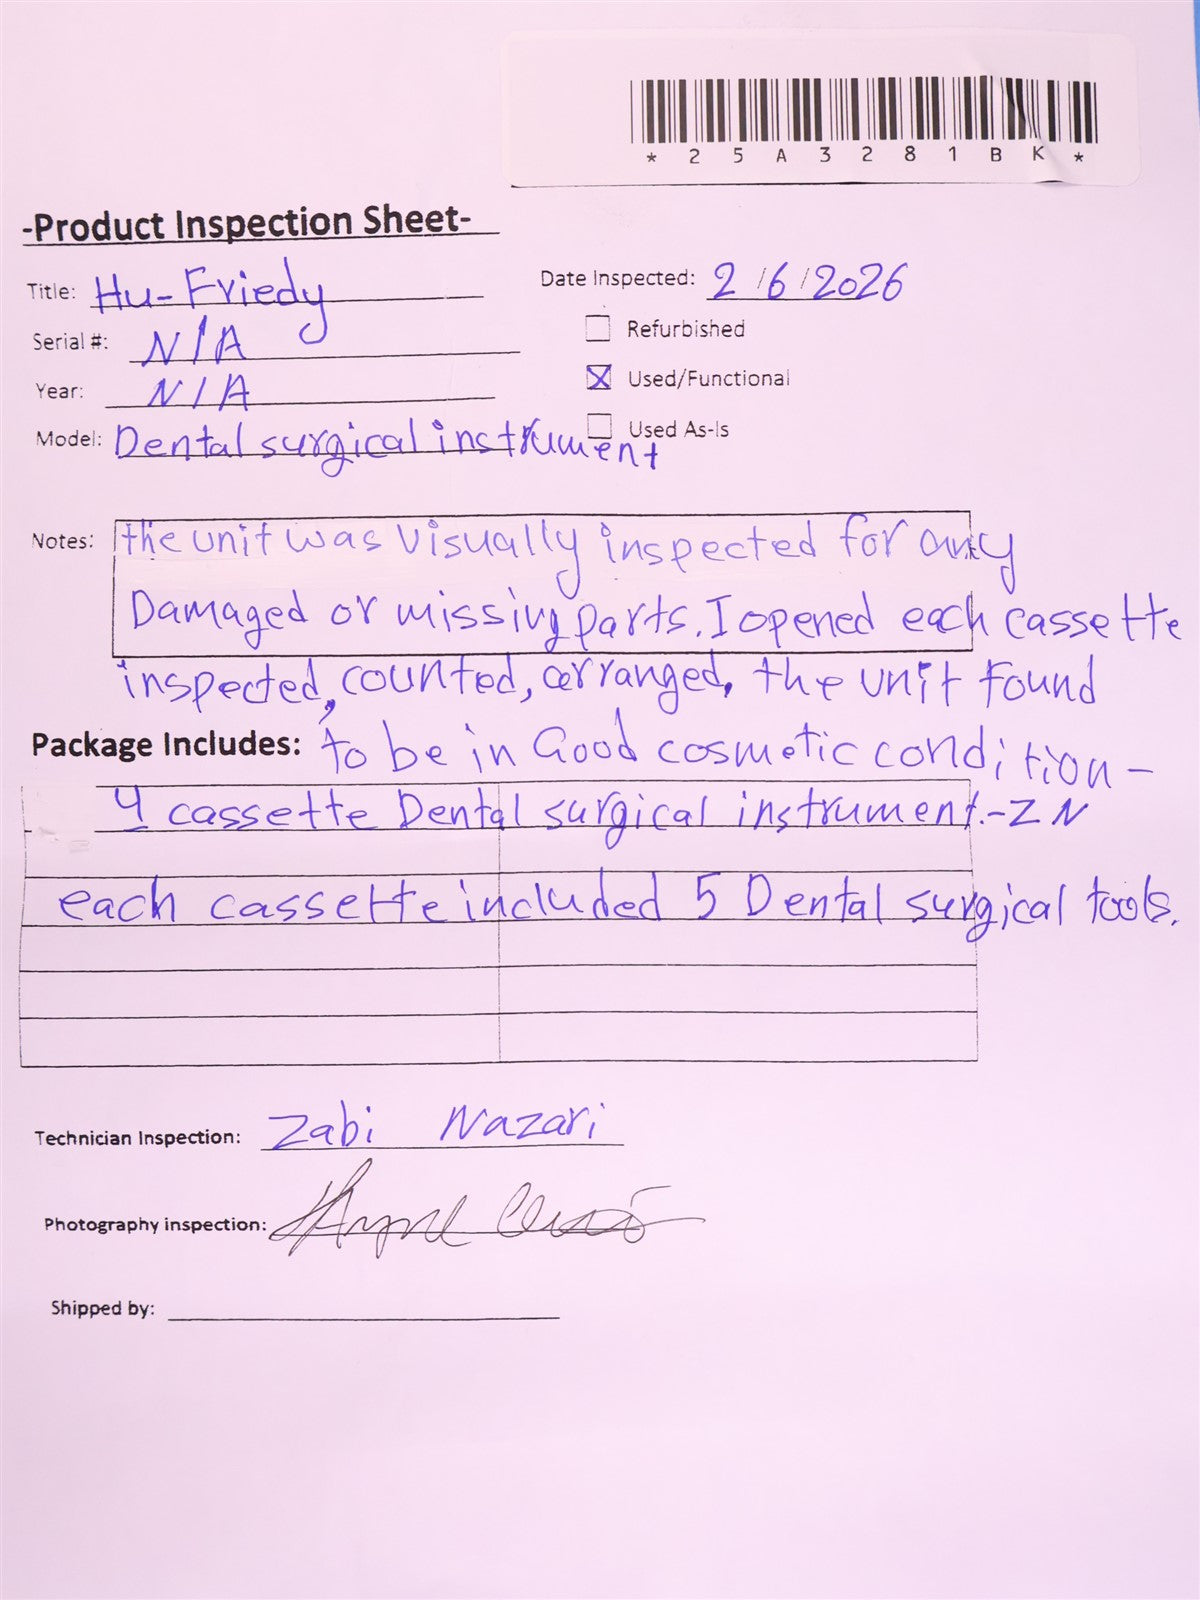 *25A3281BK*
-Product Inspection Sheet-
Title: Hu-Friedy
Date Inspected: 2/6/2026
Serial #: N/A
Refurbished
Year: N/A
Used/Functional
Model: Dental surgical instrument
Used As-Is
Notes: the unit was visually inspected for any
Damaged or missing parts. I opened each cassette
inspected, counted, arranged, the unit found
to be in Good cosmetic condition -
Package Includes:
4 cassette Dental surgical instrument.-ZN
each cassette included 5 Dental surgical tools.
Technician Inspection: Zabi Nazari
Photography inspection:
Shipped by: